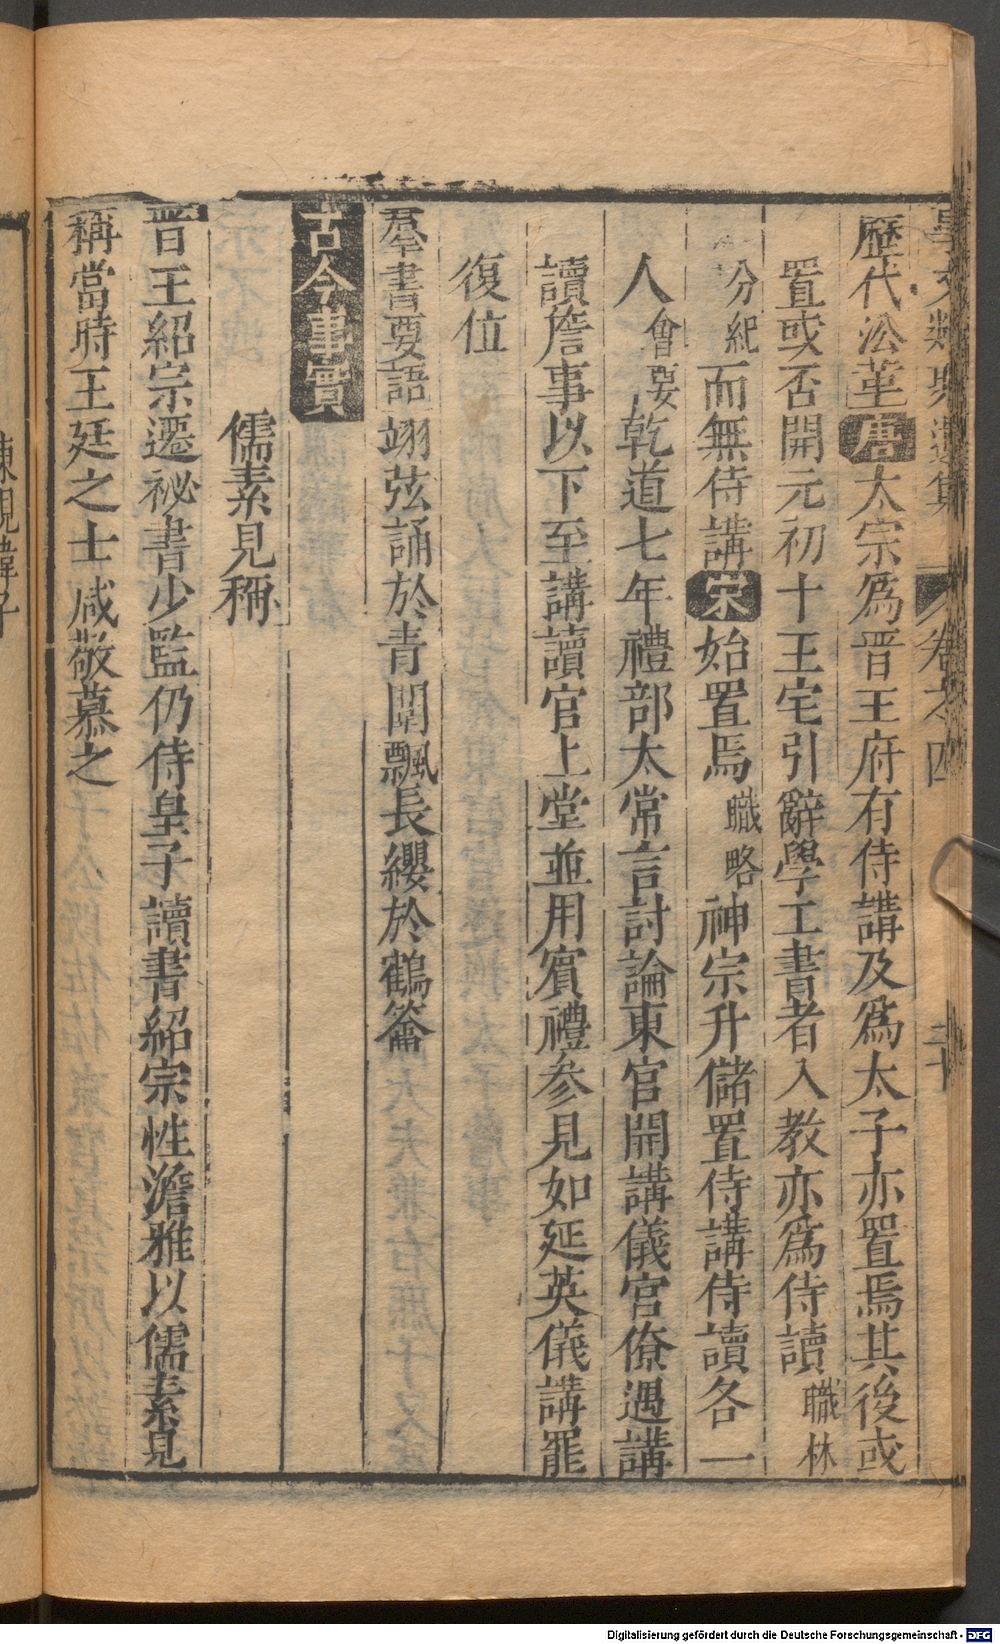 事文類聚遺集 卷之四 二十
歷代沿革唐太宗爲晉王府有侍講及爲太子亦置焉其後或
置或否開元初十王宅引辭學工書者入教亦爲侍讀職林
分紀而無侍講宋始置焉職略神宗升儲置侍講侍讀各一
人會要乾道七年禮部太常言討論東宮開講儀宮僚遇講
讀詹事以下至講讀官上堂並用賓禮參見如延英儀講罷
復位
羣書要語 翊弦誦於青闈飄長纓於鶴籥
古今事實
儒素見稱
晉王紹宗遷祕書少監仍侍皇子讀書紹宗性澹雅以儒素見
稱當時王廷之士咸敬慕之
Digitalisierung gefördert durch die Deutsche Forschungsgemeinschaft - DFG